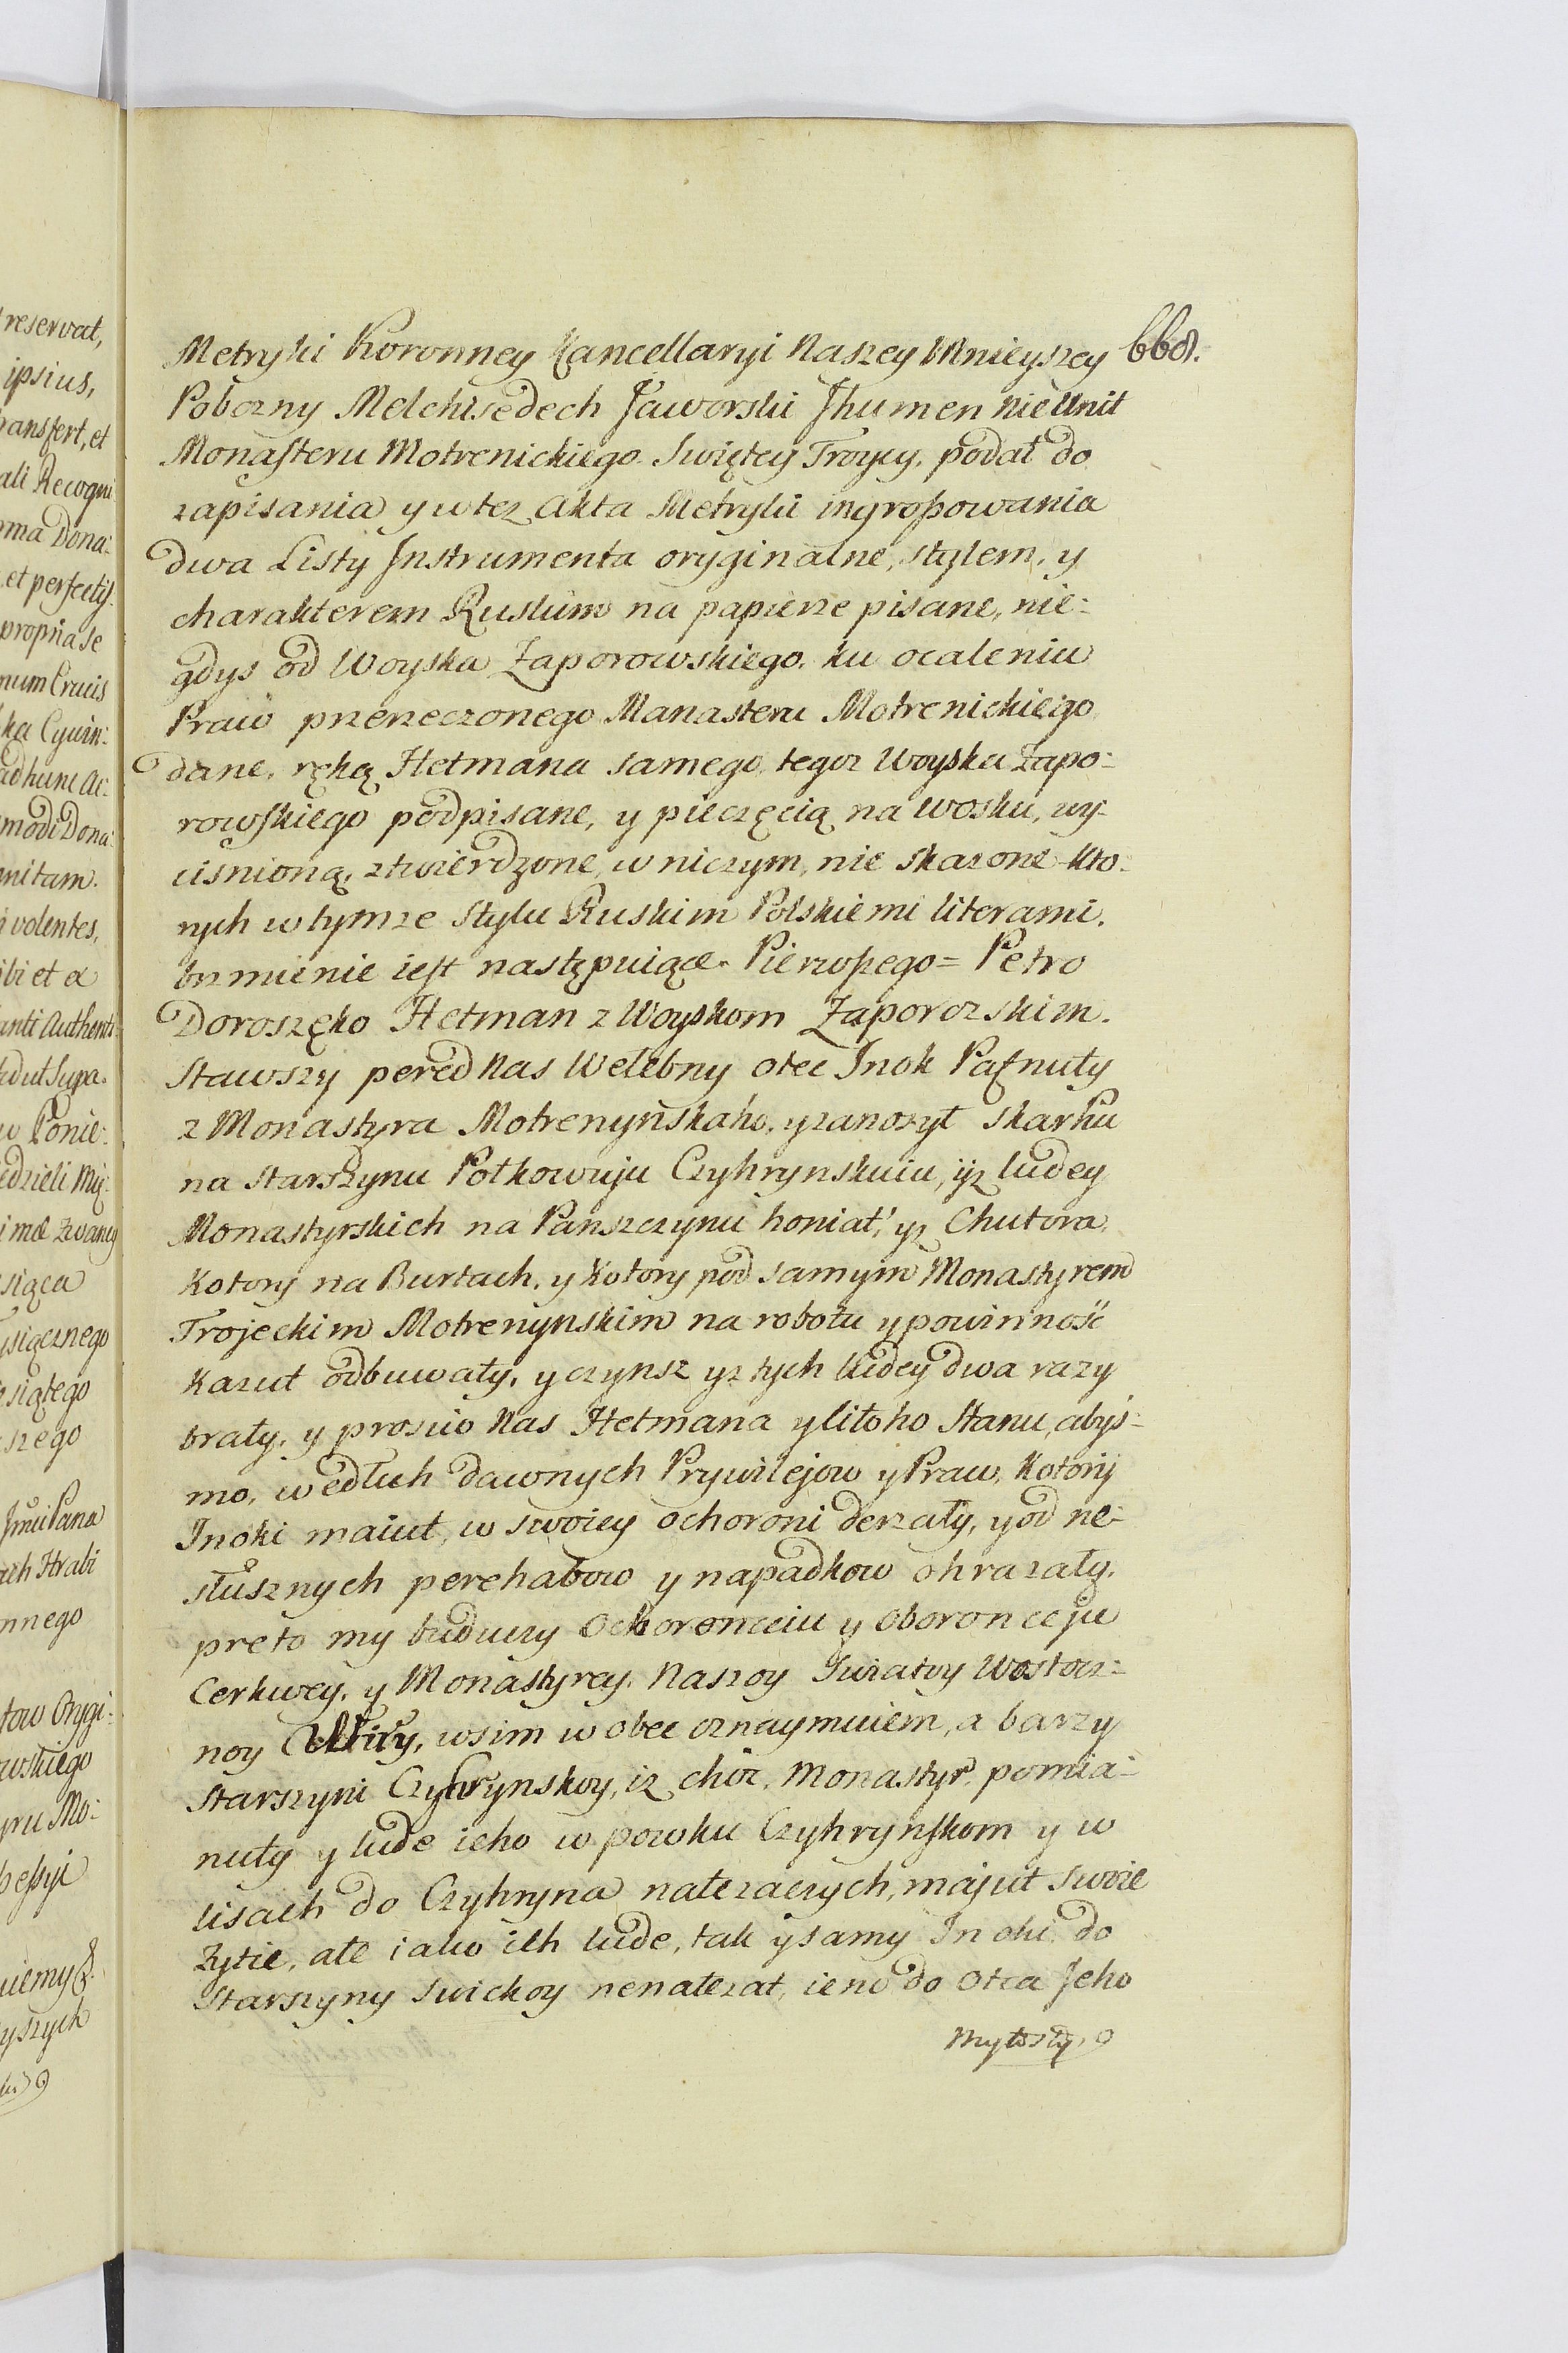 reservat,
ipsius,
ansfert, et
ali Recogni
ma Dona:
et perfectis
propria se
num Crucis
ka Cywin:
adhunc Ac:
modi Dona:
nitam.
volentes,
ibi et a
anti Authenti
ut Supa.
w Ponie:
edzieli Mię:
ime zwaney
siąca
siącznego
siątego
szego
Jmci Pana
ach Hrabi
nnego
tow Orygi:
wskiego
yru Mo:
pessyi
uiemy
yszych
Metryki Koronney Kancellaryi Naszey Mnieyszey 668.
Pobozny Melchisedech Jaworski Jhumen nie Unit
Monasteru Motrenickiego Swiętey Troycy, podał do
zapisania y w tez Akta Metryki ingrossowania
dwa Listy Jnstrumenta oryginalne, stylem, y
charakterem Ruskim na papierze pisane, nie:
gdys od Woyska Zaporowskiego, ku ocaleniu
Praw przerzeczonego Manasteru Motrenickiego
dane, ręką Hetmana samego, tegoz Woyska Zapo:
rowskiego podpisane, y pieczęcią na wosku, wy:
cisnioną, ztwierdzone, w niczym, nie skazone kto:
rych w tymze stylu Ruskim Polskiemi literami,
brzmienie iest następuiące. Pierwszego = Petro
Doroszęko Hetman z Woyskom Zaporozskim.
Stawszy pered Nas Welebny otec Jnok Pafnuty
z Monastyra Motrenynskaho, y zanosył skarhu
na Starszynu Połkowuju Czyhrynskuiu, iż ludey
Monastyrskich na Panszczynu honiat, yz Chutora
kotory na Burtach, y kotory pod samym Monastyrem
Trojeckim Motrenynskim na robotu y powinność
kazut odbuwaty, y czynsz yz tych ludey dwa razy
braty, y prosiw Nas Hetmana y litoho Stanu, abys:
mo, wedłuh dawnych Prywilejow y Praw, kotory
Jnoki maiut, w swoiey ochoroni derzaty, y od ne:
słusznych perehabow y napadkow ohrazaty,
preto my buduczy Ochoronceiu y oboronceju
Cerkwey, y Monastyrey, Naszoy Swiatoy Wostocz:
noy wsim w obec oznaymuiem, a barzy
Starszyni Czyhrynskoy, iz choc, Monastyr, pomia:
nuty y lude ieho w powku Czyhrynskom y w
lisach do Czyhryna nałezaczych, majut swoie
Zytie, ałe iako ich lude, tak y samy Jnoki do
Starszyny Swickoy nenałezat, ieno do Otca Jeho
Myłosty,